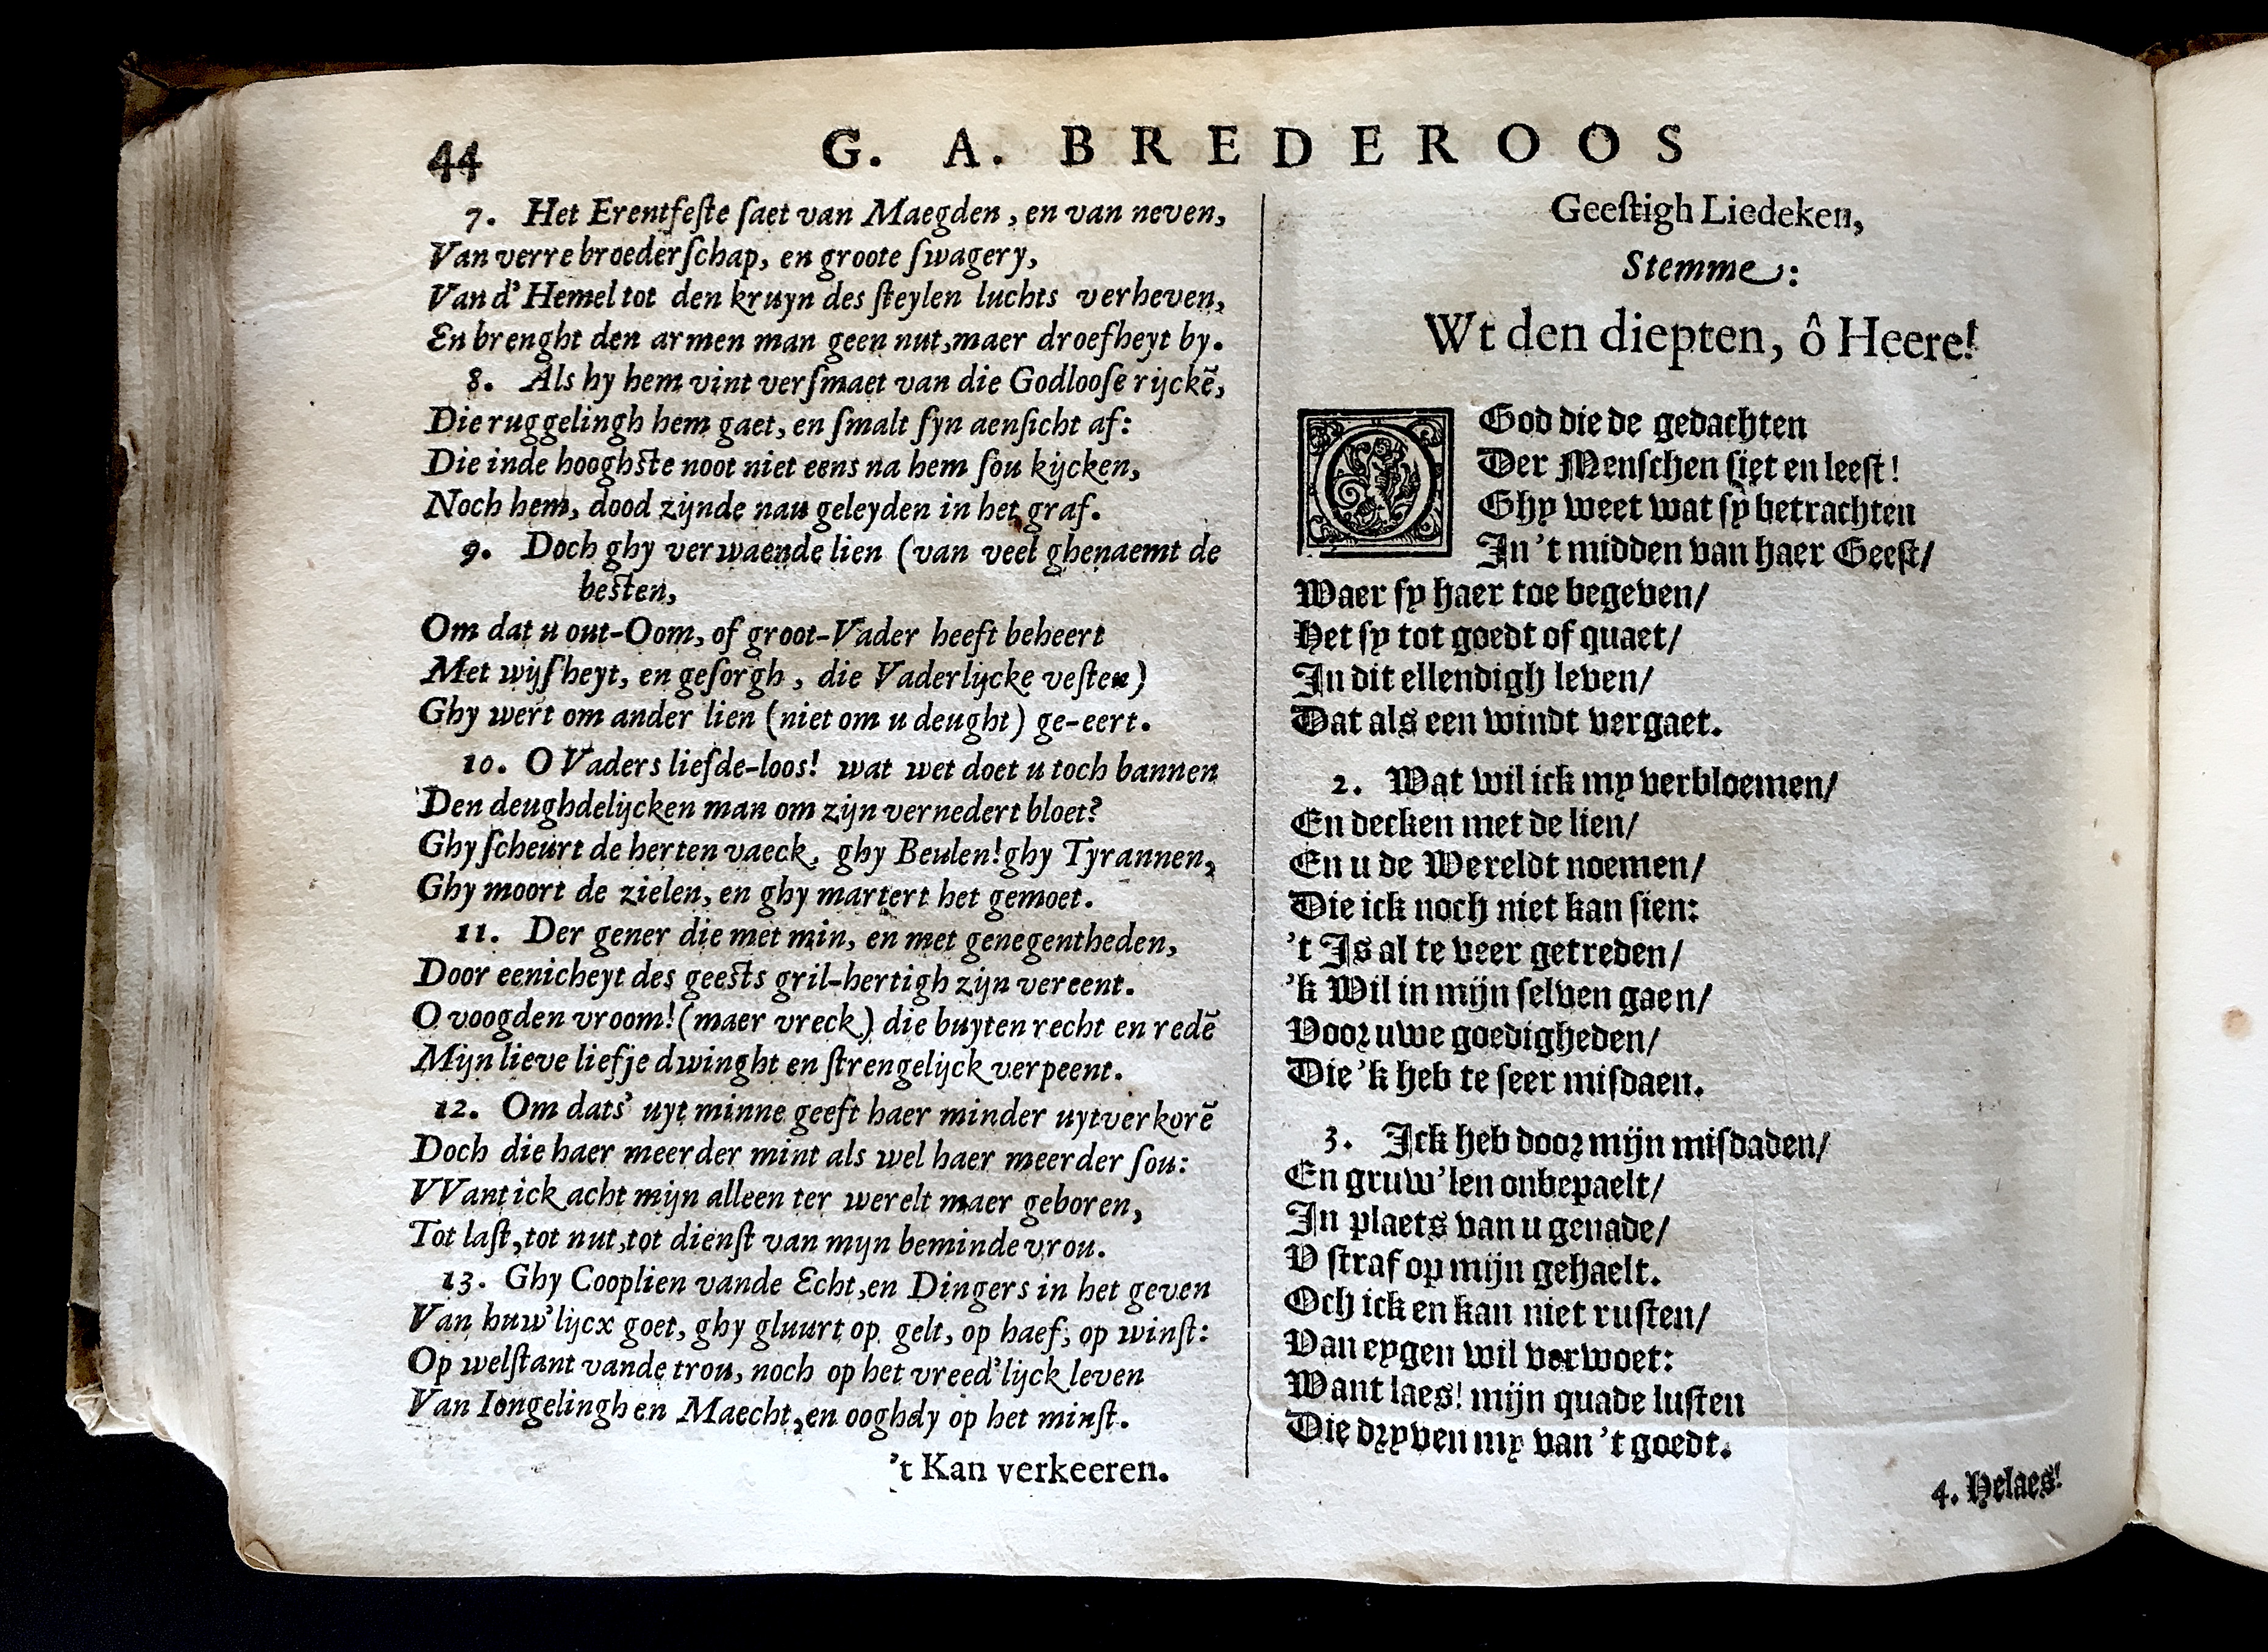 44
G. A. BREDEROOS
7. Het Erentfeſte ſaet van Maegden, en van neven,
Van verre broederſchap, en groote ſwagery,
Van d' Hemel tot den kruyn des ſteylen luchts verheven,
En brenght den armen man geen nut, maer droefheyt by.
8. Als hy hem vint verſmaet van die Godlooſe rijckẽ,
Die ruggelingh hem gaet, en ſmalt ſyn aenſicht af:
Die inde hooghſte noot niet eens na hem ſou kijcken,
Noch hem, dood zijnde nau geleyden in het graf.
9. Doch ghy verwaende lien (van veel ghenaemt de
beſten,
Om dat u out-Oom, of groot-Vader heeft beheert
Met wijſheyt, en geſorgh, die Vaderlijcke veſten)
Ghy wert om ander lien (niet om u deught) ge-eert.
10. O Vaders liefde-loos! wat wet doet u toch bannen
Den deughdelijcken man om zijn vernedert bloet?
Ghy ſcheurt de herten vaeck, ghy Beulen! ghy Tyrannen,
Ghy moort de zielen, en ghy martert het gemoet.
11. Der gener die met min, en met genegentheden,
Door eenicheyt des geeſts gril-hertigh zijn vereent.
O voogden vroom! (maer vreck) die buyten recht en redẽ
Mijn lieve liefje dwinght en ſtrengelijck verpeent.
12. Om dats' uyt minne geeft haer minder uytverkorẽ
Doch die haer meerder mint als wel haer meerder ſou:
VVant ick acht mijn alleen ter werelt maer geboren,
Tot laſt, tot nut, tot dienſt van mijn beminde vrou.
13. Ghy Cooplien vande Echt, en Dingers in het geven
Van huw'lijcx goet, ghy gluurt op gelt, op haef, op winſt:
Op welſtant vande trou, noch op het vreed'lijck leven
Van Iongelingh en Maecht, en ooghdy op het minſt.
't Kan verkeeren.
Geeſtigh Liedeken,
Stemme:
Wt den diepten, ô Heere!
O God die de gedachten
Der Menſchen ſiet en leeſt!
Ghy weet wat ſy betrachten
In 't midden van haer Geeſt/
Waer ſy haer toe begeven/
Het ſy tot goedt of quaet/
In dit ellendigh leven/
Dat als een windt vergaet.
2. Wat wil ick my verbloemen/
En decken met de lien/
En u de Wereldt noemen/
Die ick noch niet kan ſien:
't Is al te veer getreden/
'k Wil in mijn ſelven gaen/
Voor uwe goedigheden/
Die 'k heb te ſeer miſdaen.
3. Ick heb door mijn miſdaden/
En gruw'len onbepaelt/
In plaets van u genade/
V ſtraf op mijn gehaelt.
Och ick en kan niet ruſten/
Van eygen wil verwoet:
Want laes! mijn quade luſten
Die dryven my van 't goedt.
4. Helaes!